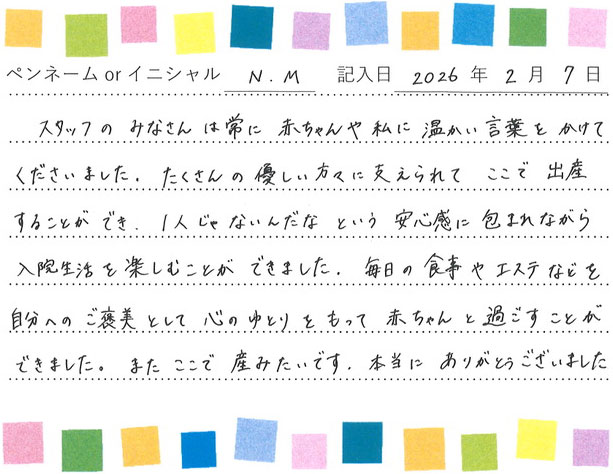 ペンネーム or イニシャル N.M 記入日 2026 年 2 月 7 日
スタッフの みなさんは常に 赤ちゃんや私に 温かい言葉をかけて
くださいました。たくさんの優しい方々に支えられて ここで 出産
することができ、1人じゃないんだな という 安心感に包まれながら
入院生活を楽しむことが できました。毎日の食事やエステなどを
自分へのご褒美として 心のゆとりをもって 赤ちゃんと過ごすことが
できました。また ここで 産みたいです。本当に ありがとうございました